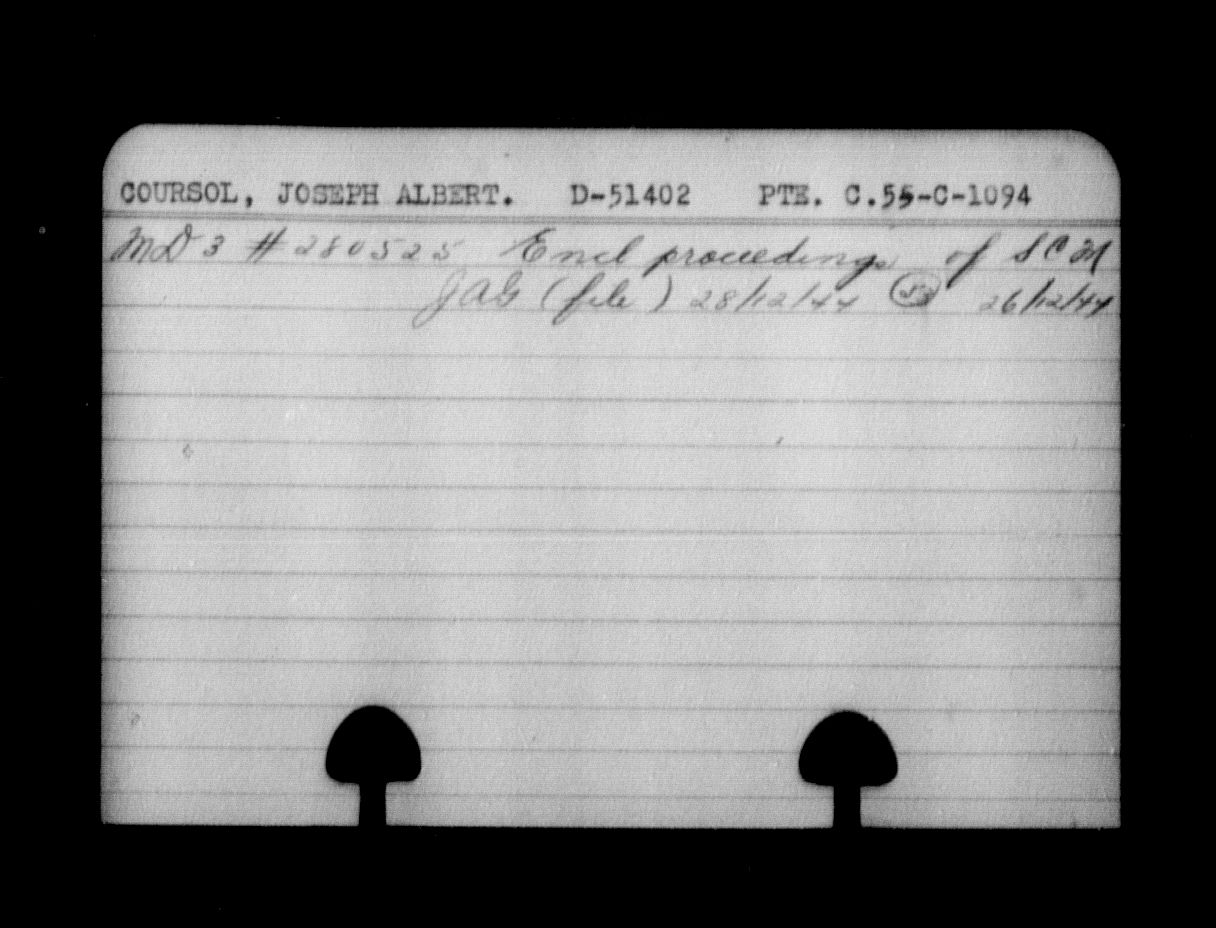 COURSOL, JOSEPH ALBERT. D-51402 PTE. C.55-C-1094
MD 3 # 280525 Encl proceedings of SCM
JAG (file) 28/12/44 26/12/44